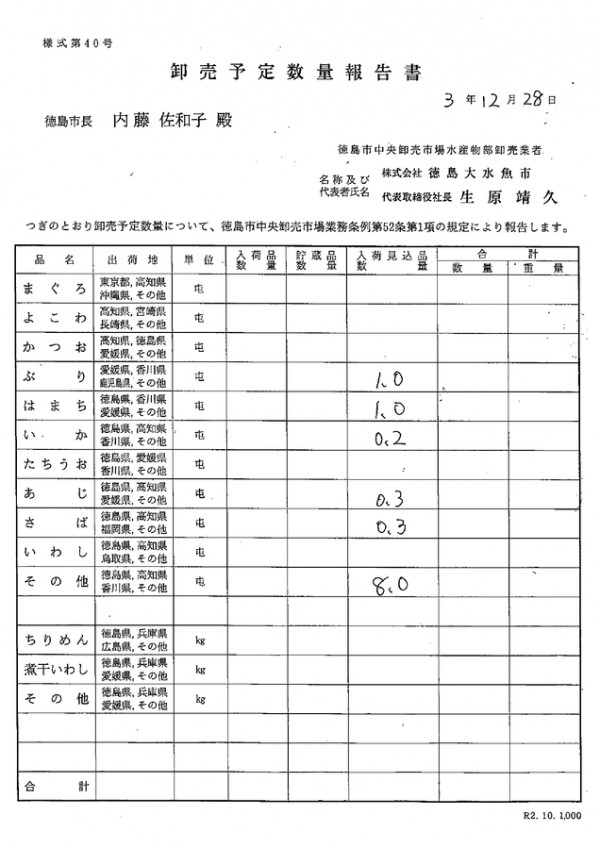 様式第40号
卸売予定数量報告書
3年12月28日
徳島市長 内藤 佐和子 殿
徳島市中央卸売市場水産物部卸売業者
名称及び 株式会社 徳島大水魚市
代表者氏名 代表取締役社長 生原靖久
つぎのとおり卸売予定数量について、徳島市中央卸売市場業務条例第52条第1項の規定により報告します。
品名 出荷地 単位 入荷品数量 貯蔵品数量 入荷見込品数量 合計 数量 重量
まぐろ 東京都,高知県 沖縄県,その他 屯
よこわ 高知県,宮崎県 長崎県,その他 屯
かつお 高知県,徳島県 愛媛県,その他 屯
ぶり 愛媛県,香川県 鹿児島県,その他 屯 1.0
はまち 徳島県,香川県 愛媛県,その他 屯 1.0
いか 徳島県,高知県 香川県,その他 屯 0.2
たちうお 徳島県,愛媛県 香川県,その他 屯
あじ 徳島県,高知県 愛媛県,その他 屯 0.3
さば 徳島県,高知県 福岡県,その他 屯 0.3
いわし 徳島県,高知県 鳥取県,その他 屯
その他 徳島県,高知県 香川県,その他 屯 8.0
ちりめん 徳島県,兵庫県 広島県,その他 kg
煮干いわし 徳島県,兵庫県 愛媛県,その他 kg
その他 徳島県,兵庫県 愛媛県,その他 kg
合計
R2.10.1,000